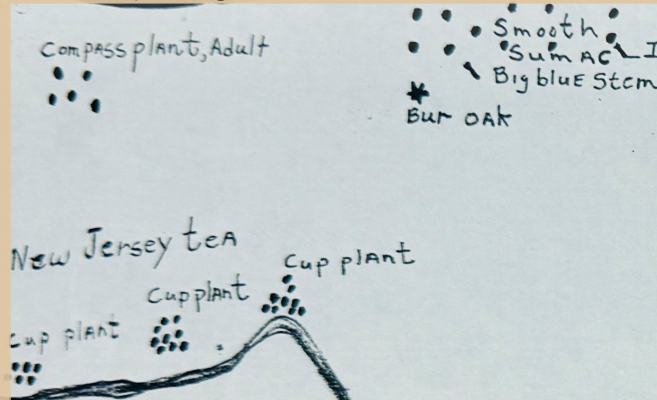 Smooth
Compass plant, Adult
Sumac
Big blue Stem
Bur oak
New Jersey tea
Cup plant
Cup plant
Cup plant